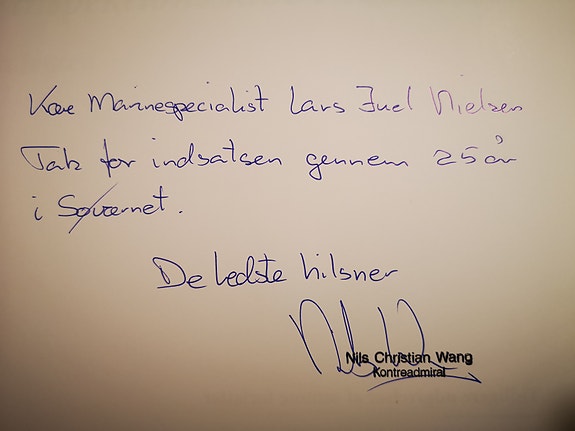 Kære Marinespecialist Lars Juel Nielsen
Tak for indsatsen gennem 25 år
i Søværnet.
De bedste hilsner
Nils Christian Wang
Kontreadmiral